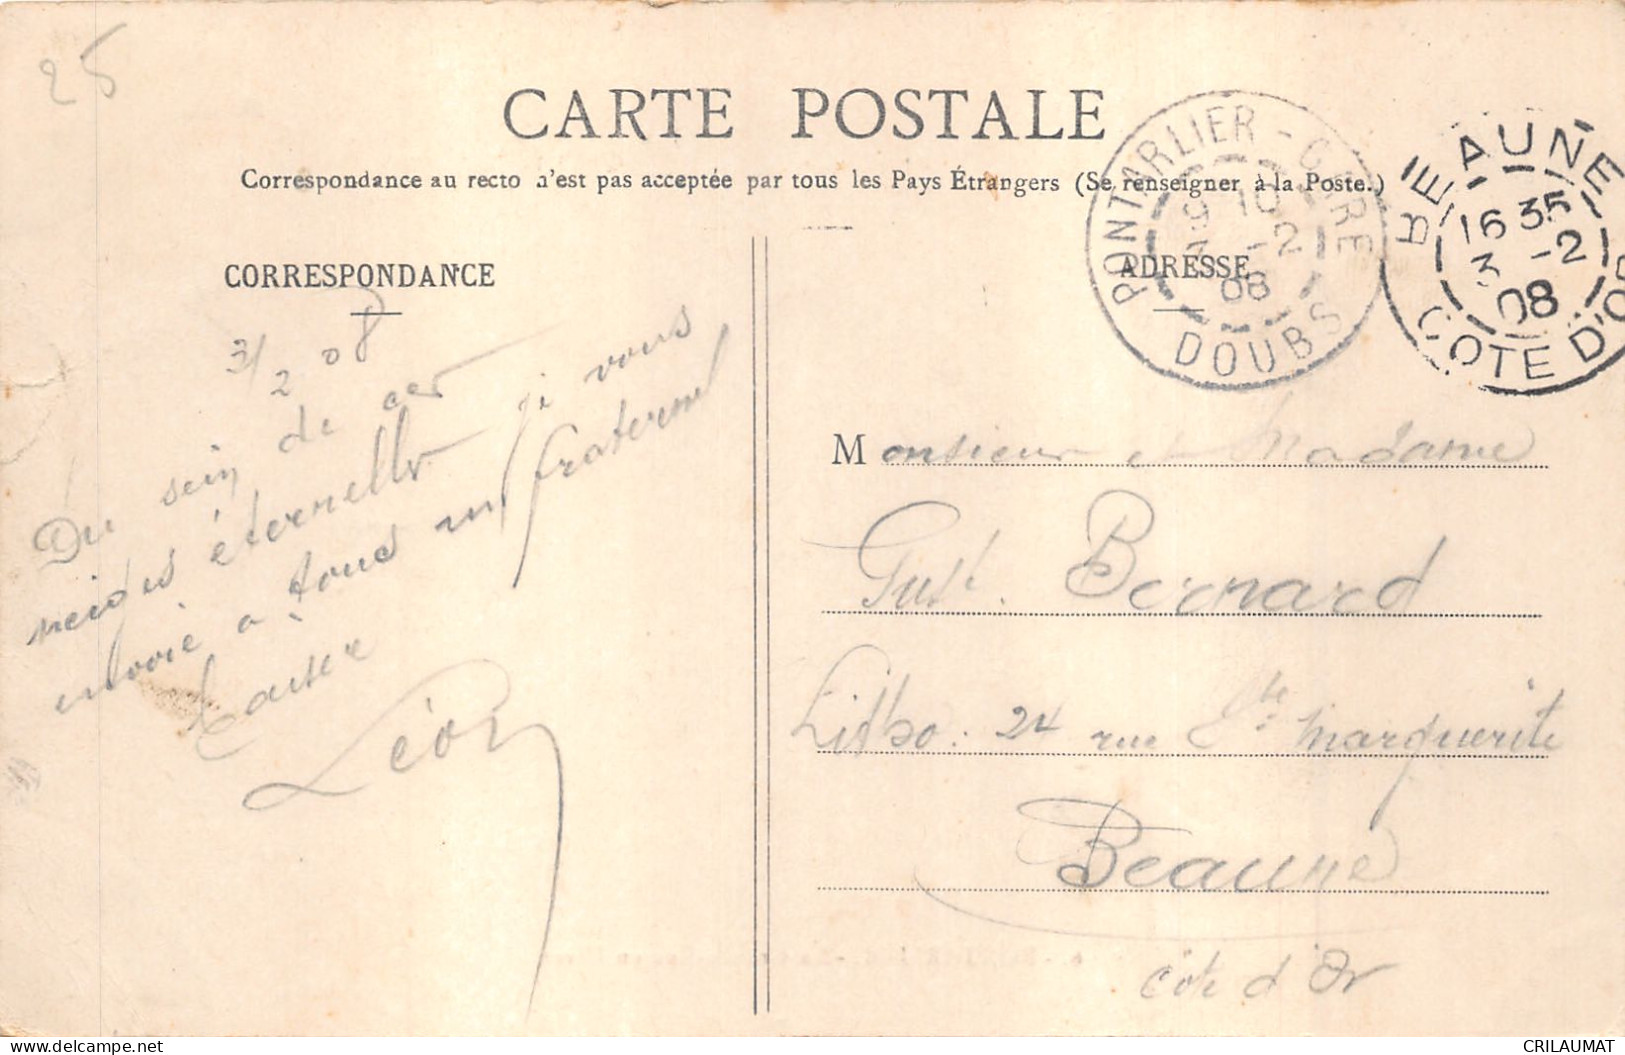 25
CARTE POSTALE
Correspondance au recto n'est pas acceptée par tous les Pays Étrangers (Se renseigner à la Poste.)
CORRESPONDANCE
3/2 08
Du sein de ces
neiges éternelles je vous
envoie à tous un fraternel
baiser
Léon
ADRESSE
PONTARLIER - GARE
9 10
3 -2
08
DOUBS
BEAUNE
16 35
3 -2
08
COTE D'OR
Monsieur et Madame
Gust. Bernard
24 rue Ste Marguerite
Beaune
Côte d'Or
CRILAUMAT